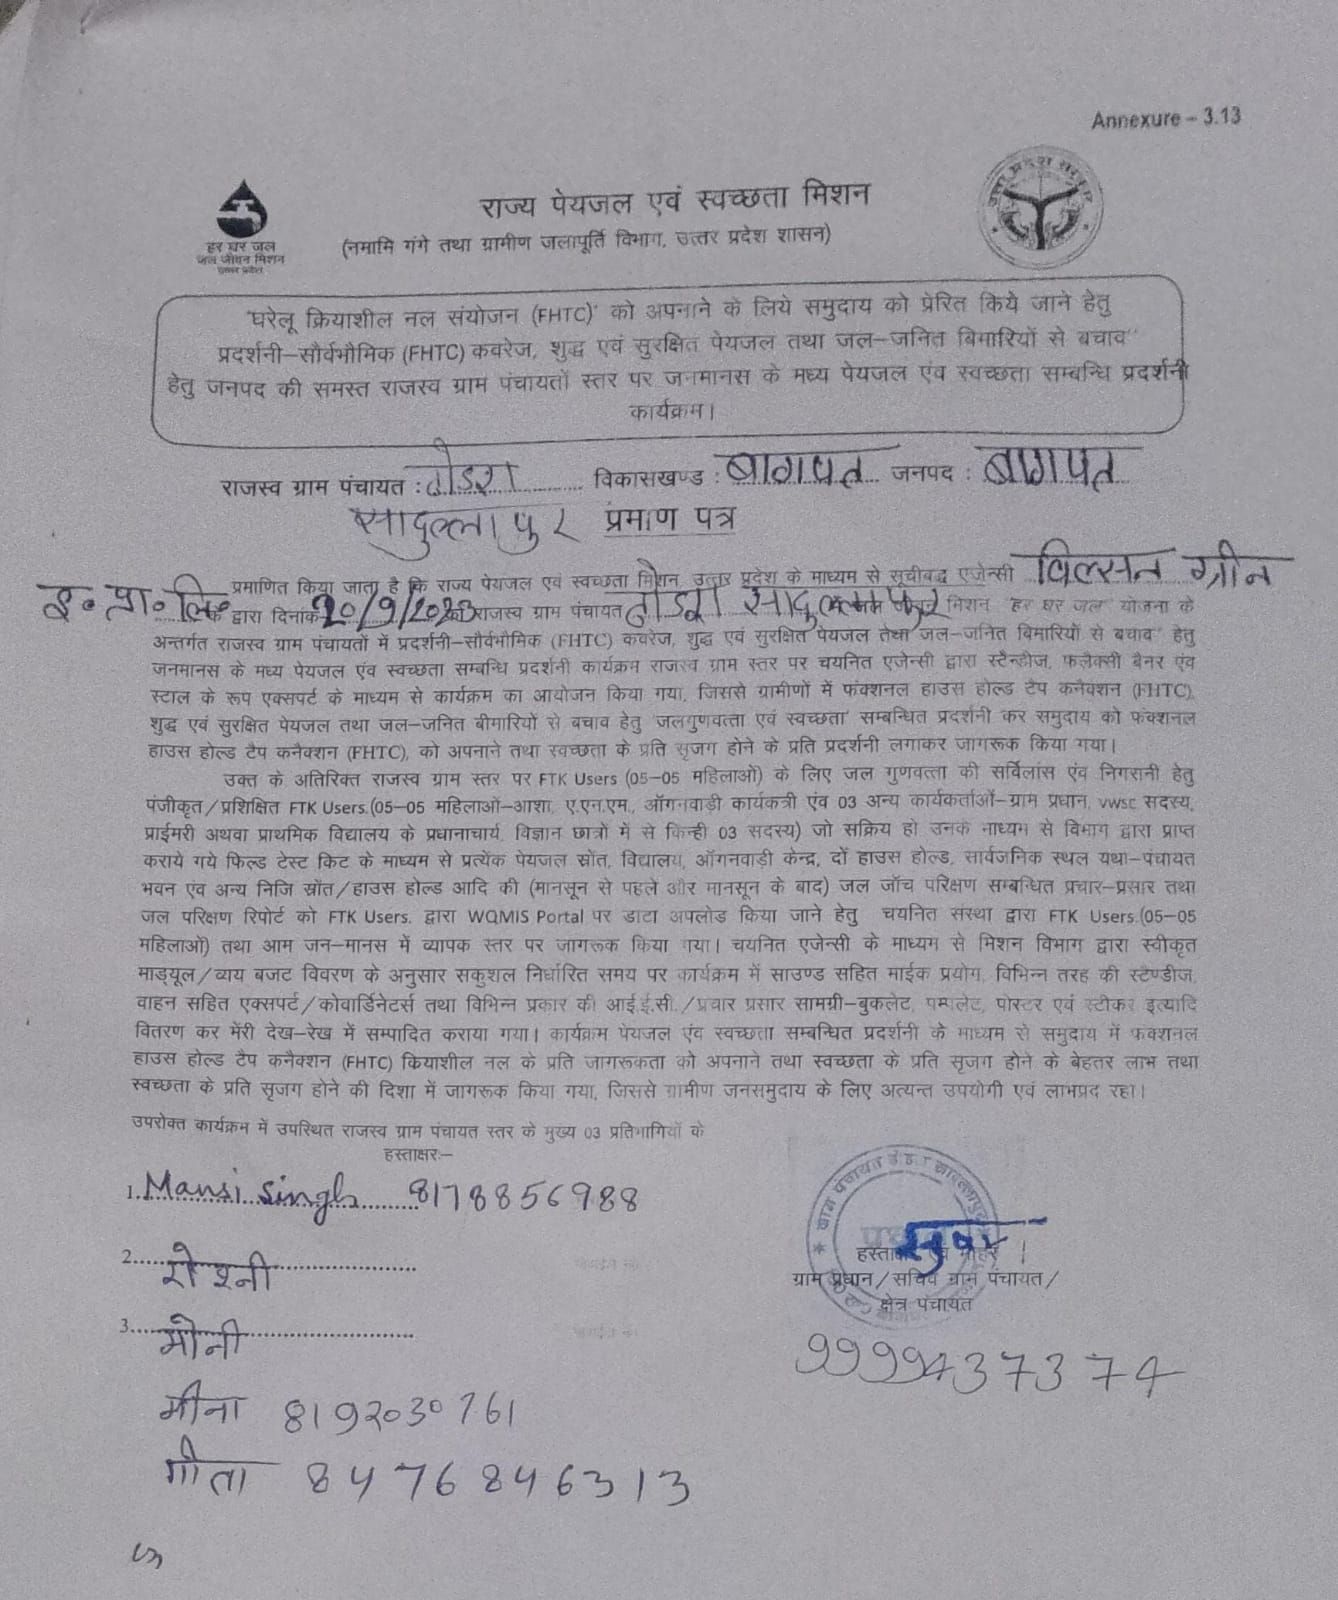 Annexure – 3.13
राज्य पेयजल एवं स्वच्छता मिशन
(नमामि गंगे तथा ग्रामीण जलापूर्ति विभाग, उत्तर प्रदेश शासन)
हर घर जल
जल जीवन मिशन
उत्तर प्रदेश
उत्तर प्रदेश सरकार
'घरेलू क्रियाशील नल संयोजन (FHTC)' को अपनाने के लिये समुदाय को प्रेरित किये जाने हेतु
प्रदर्शनी–सौर्वभौमिक (FHTC) कवरेज, शुद्ध एवं सुरक्षित पेयजल तथा जल–जनित बिमारियों से बचाव"
हेतु जनपद की समस्त राजस्व ग्राम पंचायतों स्तर पर जनमानस के मध्य पेयजल एंव स्वच्छता सम्बन्धि प्रदर्शनी
कार्यक्रम।
राजस्व ग्राम पंचायत : विकासखण्ड : बागपत जनपद : बागपत
सादुल्लापुर प्रमाण पत्र
प्रमाणित किया जाता है कि राज्य पेयजल एवं स्वच्छता मिशन, उत्तर प्रदेश के माध्यम से सूचीबद्ध एजेन्सी विल्सन ग्रीन
इ. प्रा. लि. के द्वारा दिनांक 20/9/2023 को राजस्व ग्राम पंचायत सादुल्लापुर मिशन "हर घर जल" योजना के
अन्तर्गत राजस्व ग्राम पंचायतों में प्रदर्शनी–सौर्वभौमिक (FHTC) कवरेज, शुद्ध एवं सुरक्षित पेयजल तथा जल–जनित बिमारियों से बचाव" हेतु
जनमानस के मध्य पेयजल एंव स्वच्छता सम्बन्धि प्रदर्शनी कार्यक्रम राजस्व ग्राम स्तर पर चयनित एजेन्सी द्वारा स्टैन्डीज, फलैक्सी बैनर एंव
स्टाल के रूप एक्सपर्ट के माध्यम से कार्यक्रम का आयोजन किया गया, जिससे ग्रामीणों में फंक्शनल हाउस होल्ड टैप कनैक्शन (FHTC),
शुद्ध एवं सुरक्षित पेयजल तथा जल–जनित बीमारियों से बचाव हेतु 'जलगुणवत्ता एवं स्वच्छता' सम्बन्धित प्रदर्शनी कर समुदाय को फंक्शनल
हाउस होल्ड टैप कनैक्शन (FHTC), को अपनाने तथा स्वच्छता के प्रति सृजग होने के प्रति प्रदर्शनी लगाकर जागरूक किया गया।
उक्त के अतिरिक्त राजस्व ग्राम स्तर पर FTK Users (05–05 महिलाओं) के लिए जल गुणवत्ता की सर्विलांस एंव निगरानी हेतु
पंजीकृत/प्रशिक्षित FTK Users.(05–05 महिलाओं–आशा, ए.एन.एम., ऑगनवाड़ी कार्यकत्री एंव 03 अन्य कार्यकर्ताओं–ग्राम प्रधान, vwsc सदस्य,
प्राईमरी अथवा प्राथमिक विद्यालय के प्रधानाचार्य, विज्ञान छात्रों में से किन्ही 03 सदस्य) जो सक्रिय हो उनके माध्यम से विभाग द्वारा प्राप्त
कराये गये फिल्ड टेस्ट किट के माध्यम से प्रत्येंक पेयजल स्रोंत, विद्यालय, ऑगनवाड़ी केन्द्र, दों हाउस होल्ड, सार्वजनिक स्थल यथा–पंचायत
भवन एंव अन्य निजि स्रोंत/हाउस होल्ड आदि की (मानसून से पहले और मानसून के बाद) जल जॉच परिक्षण सम्बन्धित प्रचार–प्रसार तथा
जल परिक्षण रिपोर्ट को FTK Users. द्वारा WQMIS Portal पर डाटा अपलोड किया जाने हेतु चयनित संस्था द्वारा FTK Users.(05–05
महिलाओं) तथा आम जन–मानस में व्यापक स्तर पर जागरूक किया गया। चयनित एजेन्सी के माध्यम से मिशन विभाग द्वारा स्वीकृत
माड्यूल/व्यय बजट विवरण के अनुसार सकुशल निर्धारित समय पर कार्यक्रम में साउण्ड सहित माईक प्रयोग, विभिन्न तरह की स्टैण्डीज,
वाहन सहित एक्सपर्ट/कोवार्डिनेटर्स तथा विभिन्न प्रकार की आई.ई.सी./प्रचार प्रसार सामग्री–बुकलेट, पम्पलेट, पोस्टर एवं स्टीकर इत्यादि
वितरण कर मेंरी देख–रेख में सम्पादित कराया गया। कार्यक्रम पेयजल एंव स्वच्छता सम्बन्धित प्रदर्शनी के माध्यम से समुदाय में फंक्शनल
हाउस होल्ड टैप कनैक्शन (FHTC) कियाशील नल के प्रति जागरूकता को अपनाने तथा स्वच्छता के प्रति सृजग होने के बेहतर लाभ तथा
स्वच्छता के प्रति सृजग होने की दिशा में जागरूक किया गया, जिससे ग्रामीण जनसमुदाय के लिए अत्यन्त उपयोगी एवं लाभप्रद रहा।
उपरोक्त कार्यक्रम में उपस्थित राजस्व ग्राम पंचायत स्तर के मुख्य 03 प्रतिभागियों के
हस्ताक्षरः–
1. Mansi singh 8178856988
2. रोश्नी
3. मोनी
मीना 8192030761
गीता 8476846313
हस्ताक्षर एवं मोहर
ग्राम प्रधान/सचिव ग्राम पंचायत/
क्षेत्र पंचायत
9999437374